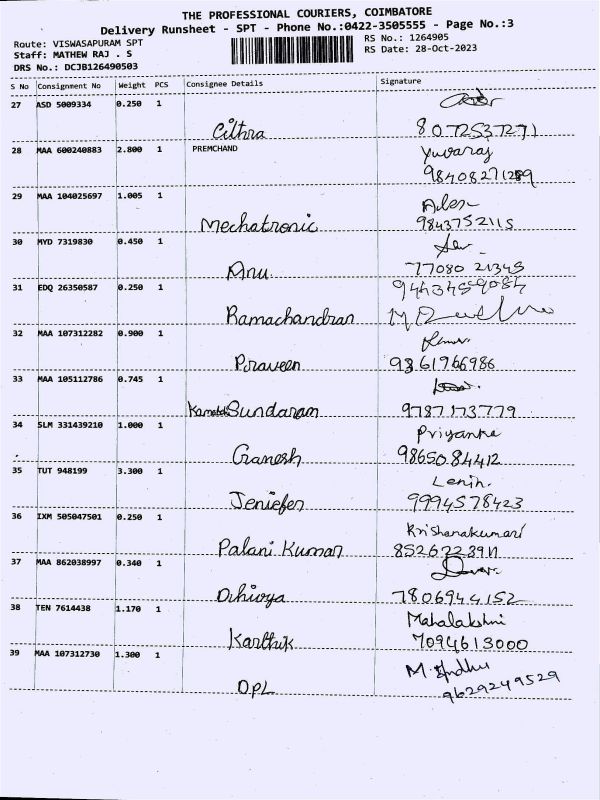 THE PROFESSIONAL COURIERS, COIMBATORE
Delivery Runsheet - SPT - Phone No.:0422-3505555 - Page No.:3
Route: VISWASAPURAM SPT
RS No.: 1264905
Staff: MATHEW RAJ . S
RS Date: 28-Oct-2023
DRS No.: DCJB126490503
S No Consignment No Weight PCS Consignee Details Signature
27 ASD 5009334 0.250 1
Cithra 8072537271
28 MAA 600240883 2.800 1 PREMCHAND Yuvaraj
29 MAA 104025697 1.005 1
Mechatronic 9843752115
30 MYD 7319830 0.450 1
Anu. 77080 21345
31 EDQ 26350587 0.250 1
Ramachandran
32 MAA 107312282 0.900 1
Praveen 9361966986
33 MAA 105112786 0.745 1
Sundaram 9787173779
34 SLM 331439210 1.000 1 Priyanka
Ganesh 9865084412
35 TUT 948199 3.300 1 Lenin.
Jeniefer 9994578423
36 IXM 505047501 0.250 1 Krishanakumari
Palani Kumar
37 MAA 862038997 0.340 1
Dhivya 7806944152
38 TEN 7614438 1.170 1 Mahalakshmi
Karthik 7094613000
39 MAA 107312730 1.300 1 M. Indhu
DPL 9629249529